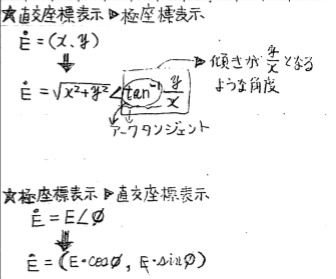 ☆直交座標表示▷極座標表示
Ė = (x, y)
⇓
Ė = √x²+y² ∠ tan⁻¹ y/x
▷傾きが y/x となる
ような角度
アークタンジェント
☆極座標表示▷直交座標表示
Ė = E∠∅
⇓
Ė = (E・cos∅, E・sin∅)